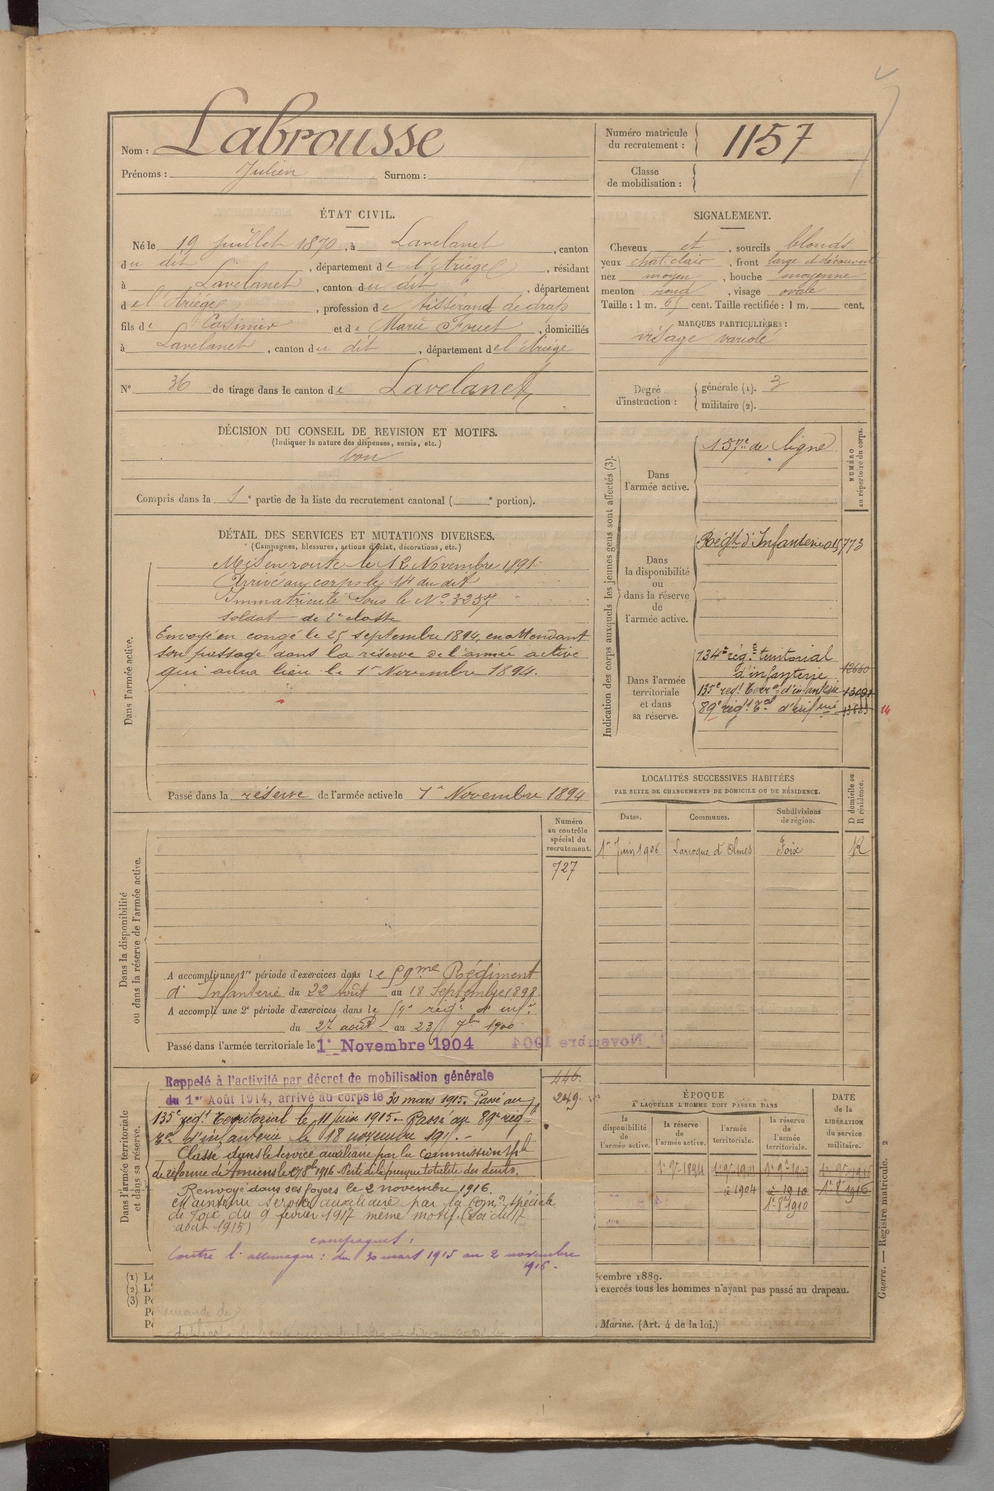 Nom : Labrousse
Prénoms : Julien Surnom :
Numéro matricule du recrutement : 1157
Classe de mobilisation :
ÉTAT CIVIL.
Né le 19 juillet 1870, à Lavelanet, canton
du dit, département de l'Ariège, résidant
à Lavelanet, canton du dit, département
de l'Ariège, profession de tisserand de drap
fils de Casimir et de Marie Fouet, domiciliés
à Lavelanet, canton du dit, département de l'Ariège
N° 36 de tirage dans le canton de Lavelanet
SIGNALEMENT.
Cheveux et, sourcils blonds
yeux chat clair, front large et découvert
nez moyen, bouche moyenne
menton rond, visage ovale
Taille : 1 m. 65 cent. Taille rectifiée : 1 m. cent.
MARQUES PARTICULIÈRES :
visage variolé
Degré d'instruction : générale (1). 3
militaire (2).
DÉCISION DU CONSEIL DE REVISION ET MOTIFS.
(Indiquer la nature des dispenses, sursis, etc.)
bon
Compris dans la 1e partie de la liste du recrutement cantonal ( e portion).
DÉTAIL DES SERVICES ET MUTATIONS DIVERSES.
(Campagnes, blessures, actions d'éclat, décorations, etc.)
Dans l'armée active.
Mis en route le 12 Novembre 1891
Arrivé au corps le 14 du dit
Immatriculé sous le N° 3257
soldat de 2e classe
Envoyé en congé le 25 septembre 1894, en attendant
son passage dans la réserve de l'armée active
qui aura lieu le 1er Novembre 1894.
Passé dans la réserve de l'armée active le 1er Novembre 1894
Indication des corps auxquels les jeunes gens sont affectés (3).
NUMÉRO au répertoire du corps.
Dans l'armée active.
157e de ligne
Dans la disponibilité ou dans la réserve de l'armée active.
Régt d'Infanterie 15773
Dans l'armée territoriale et dans sa réserve.
134e rég. territorial
d'infanterie
135e régt Terr. d'infanterie
89e régt Tal d'infrie
LOCALITÉS SUCCESSIVES HABITÉES
PAR SUITE DE CHANGEMENTS DE DOMICILE OU DE RÉSIDENCE.
Dates. Communes. Subdivisions de région. D domicile ou R résidence.
1er Juin 1906 Laroque d'Olmes Foix R
Dans la disponibilité ou dans la réserve de l'armée active.
Numéro au contrôle spécial du recrutement.
727
A accompli une 1re période d'exercices dans le 59me Régiment
d'Infanterie du 22 août au 18 Septembre 1898
A accompli une 2e période d'exercices dans le 59e rég. d'inf.
du 27 août au 23 7bre 1900
Passé dans l'armée territoriale le 1er Novembre 1904
Dans l'armée territoriale et dans sa réserve.
446.
249.
Rappelé à l'activité par décret de mobilisation générale
du 1er Août 1914, arrivé au corps le 30 mars 1915. Passé au
135e régt Territorial le 11 juin 1915. Passé au 89e rég.
Tal d'infanterie le 18 novembre 1915.
Classé dans le service auxiliaire par la Commission
de réforme de Perte de la presque totalité des dents.
Renvoyé dans ses foyers le 2 novembre 1916.
Maintenu service auxiliaire par la Comon spéciale
de Foix du 9 février 1917 même motif (Loi du 17
août 1915)
campagnes :
Contre l'allemagne : du 30 mars 1915 au 2 novembre
1916.
ÉPOQUE
À LAQUELLE L'HOMME DOIT PASSER DANS
la disponibilité de l'armée active. la réserve de l'armée active. l'armée territoriale. la réserve de l'armée territoriale.
DATE de la LIBÉRATION du service militaire.
1er 9bre 1894
1904 1910
1er 8bre 1910
1er 8bre 1916
(1)
(2)
(3)
décembre 1889.
à exercés tous les hommes n'ayant pas passé au drapeau.
Marine. (Art. 4 de la loi.)
Guerre. — Registre matricule. 2